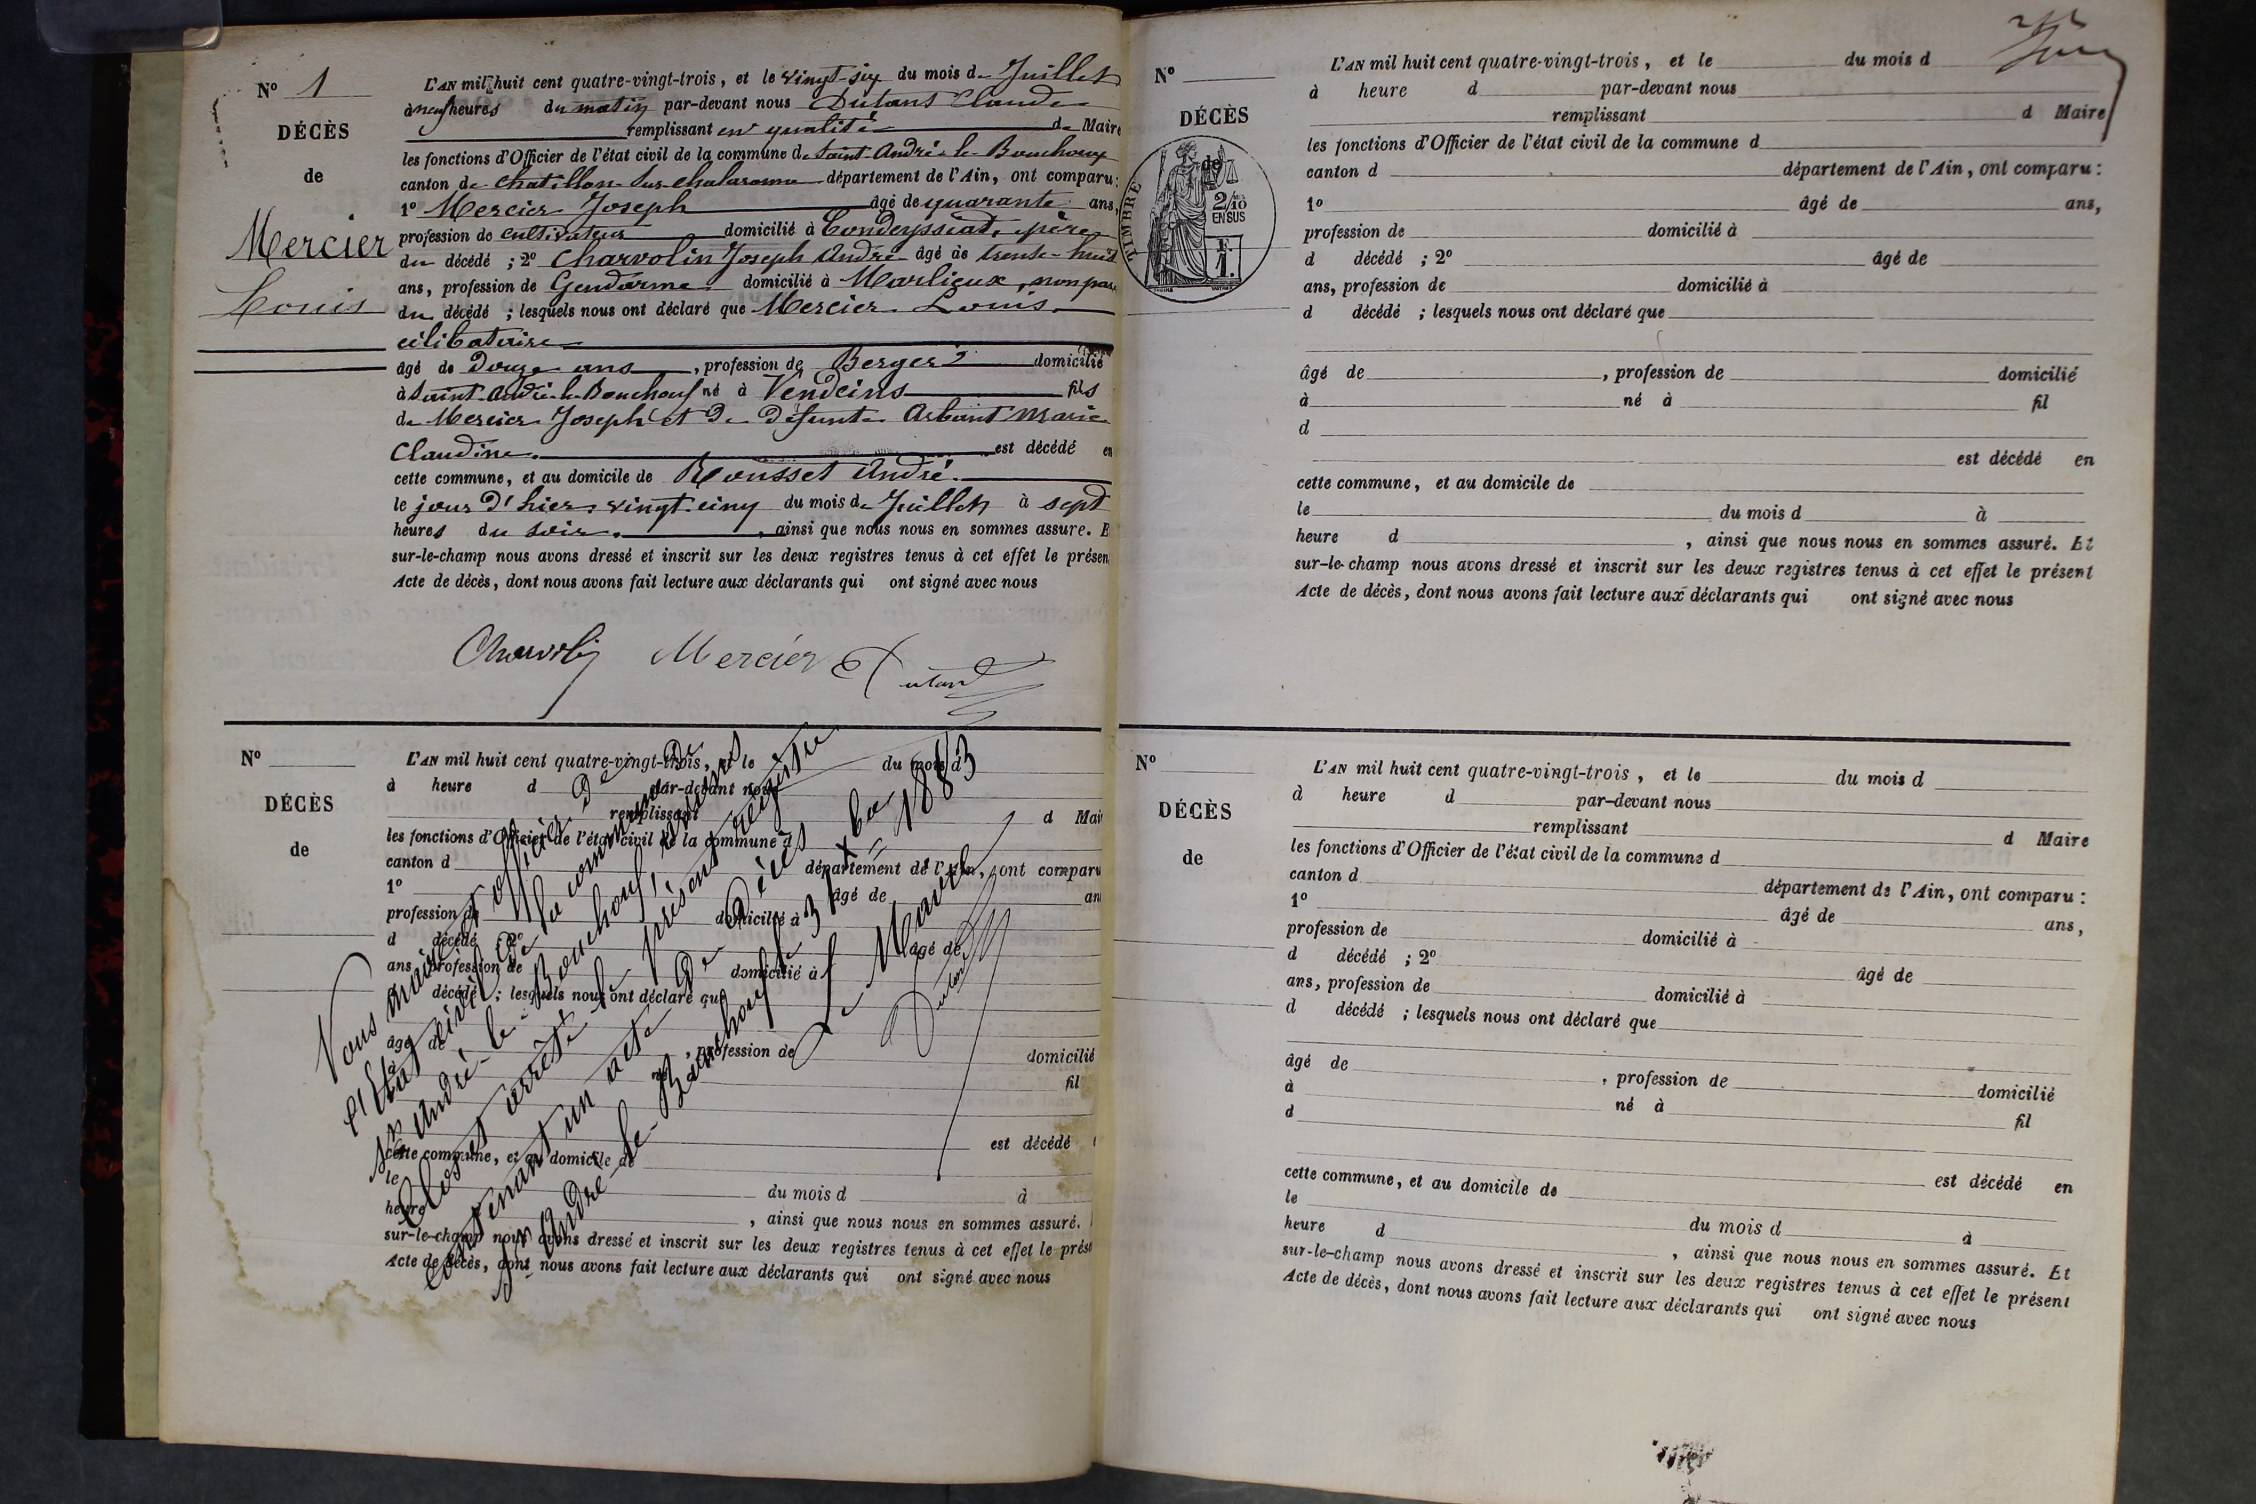 N° 1
DÉCÈS
de
Mercier
Louis
L'AN mil huit cent quatre-vingt-trois, et le vingt-six du mois de Juillet
à neuf heures du matin par-devant nous Dutant Claude
remplissant en qualité de Maire
les fonctions d'Officier de l'état civil de la commune de Saint-André-le-Bouchoux
canton de Chatillon-Sur-Chalaronne département de l'Ain, ont comparu :
1° Mercier Joseph âgé de quarante ans,
profession de cultivateur domicilié à Condeyssiat, père
du décédé ; 2° Charvolin Joseph André âgé de trente-huit
ans, profession de Gendarme domicilié à Marlieux, non
du décédé ; lesquels nous ont déclaré que Mercier Louis
célibataire
âgé de Douze ans, profession de Berger domicilié
à Saint-André-le-Bouchoux né à Vendeins fils
de Mercier Joseph et De Défunte Arbant Marie
Claudine. est décédé en
cette commune, et au domicile de Rousset André.
le jour d'hier, vingt-cinq du mois de Juillet à sept
heures du soir. , ainsi que nous nous en sommes assuré. E
sur-le-champ nous avons dressé et inscrit sur les deux registres tenus à cet effet le présen
Acte de décès, dont nous avons fait lecture aux déclarants qui ont signé avec nous
Charvolin Mercier Dutant
N°
DÉCÈS
de
L'AN mil huit cent quatre-vingt-trois, et le du mois d
à heure d par-devant nous
remplissant d Mai
les fonctions d'Officier de l'état civil de la commune d
canton d département de l'Ain, ont comparu
1° âgé de an
profession de domicilié à
d décédé ; 2° âgé de
ans, profession de domicilié à
d décédé ; lesquels nous ont déclaré que
âgé de , profession de domicilié
à né fil
est décédé
cette commune, et au domicile de
le du mois d à
heure , ainsi que nous nous en sommes assuré.
sur-le-champ nous avons dressé et inscrit sur les deux registres tenus à cet effet le prés
Acte de décès, dont nous avons fait lecture aux déclarants qui ont signé avec nous
Nous maire et officier de
l'Etat civil de la commune de
St André-le-Bouchoux, avons
Clos et arrêté le présent registre
contenant un acte de Décès
St André-le-Bouchoux le 31 Xbre 1883
Le Maire
Dutant
N°
DÉCÈS
de
TIMBRE
2/10
EN SUS
L'AN mil huit cent quatre-vingt-trois, et le du mois d
à heure d par-devant nous
remplissant d Maire
les fonctions d'Officier de l'état civil de la commune d
canton d département de l'Ain, ont comparu :
1° âgé de ans,
profession de domicilié à
d décédé ; 2° âgé de
ans, profession de domicilié à
d décédé ; lesquels nous ont déclaré que
âgé de , profession de domicilié
à né à fil
d
est décédé en
cette commune, et au domicile de
le du mois d à
heure d , ainsi que nous nous en sommes assuré. Et
sur-le-champ nous avons dressé et inscrit sur les deux registres tenus à cet effet le présent
Acte de décès, dont nous avons fait lecture aux déclarants qui ont signé avec nous
N°
DÉCÈS
de
L'AN mil huit cent quatre-vingt-trois, et le du mois d
à heure d par-devant nous
remplissant d Maire
les fonctions d'Officier de l'état civil de la commune d
canton d département de l'Ain, ont comparu :
1° âgé de ans,
profession de domicilié à
d décédé ; 2° âgé de
ans, profession de domicilié à
d décédé ; lesquels nous ont déclaré que
âgé de , profession de domicilié
à né à fil
d
est décédé en
cette commune, et au domicile de
le du mois d à
heure d , ainsi que nous nous en sommes assuré. Et
sur-le-champ nous avons dressé et inscrit sur les deux registres tenus à cet effet le présent
Acte de décès, dont nous avons fait lecture aux déclarants qui ont signé avec nous